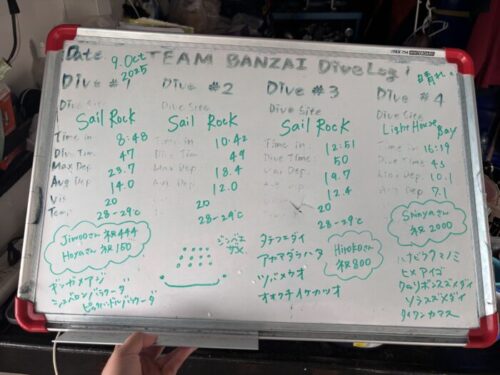 Date 9. Oct 2025 TEAM BANZAI Dive Log! 晴れ
Dive #1
Dive Site
Sail Rock
Time in 8:48
Div. Time 47
Max Dep 23.7
Avg Dep 14.0
Vis 20
Temp 28-29℃
Jimboさん 祝444
Hoyaさん 祝150
ギンガメアジ
シェブロンバラクーダ
ピックハンドルバラクーダ
Dive #2
Dive Site
Sail Rock
Time in 10:42
Dive Time 49
Max Dep. 18.4
Avg Dep. 12.0
20
28-29℃
ジンベエ
ザメ
Dive #3
Dive Site
Sail Rock
Time in 12:51
Dive Time 50
Max Dep. 19.7
12.4
20
28-29℃
タテフエダイ
アヤマダラハタ
ツバメウオ
オオクチイケカツオ
Hirokoさん
祝800
Dive #4
Dive Site
Light House Bay
Time in 16:19
Dive Time 45
Max Dep. 10.1
Avg Dep. 7.1
Shinyaさん
祝2000
ハナビラクマノミ
ヒメアイゴ
クロリボンスズメダイ
ソラスズメダイ
タイワンカマス